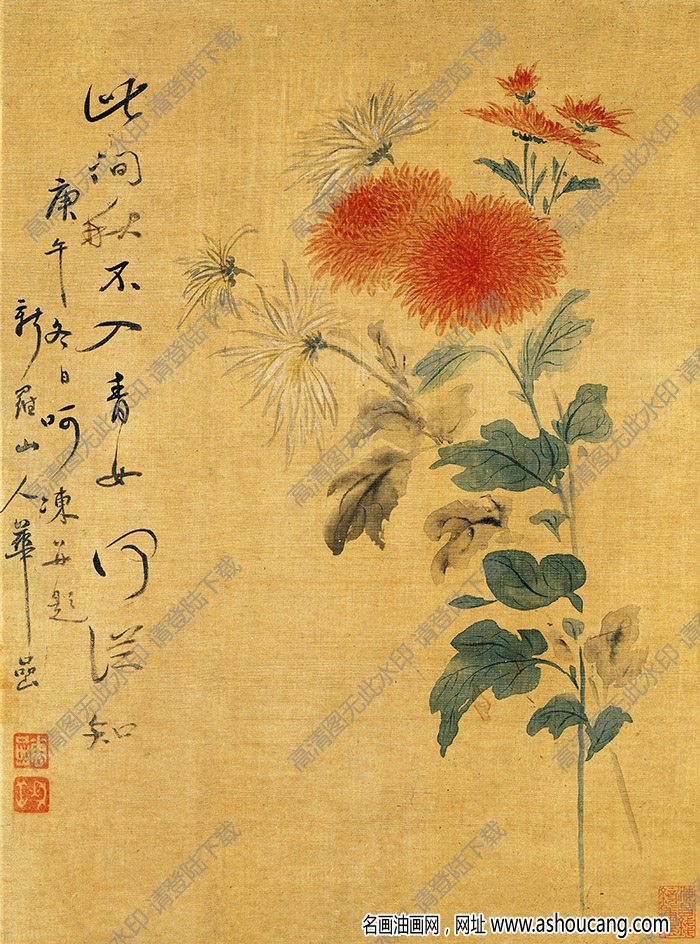 此間秋不入青女何從知
庚午冬日呵凍并題
新羅山人華喦
高清图无此水印 请登陆下载
名画油画网，网址 www.ashoucang.com